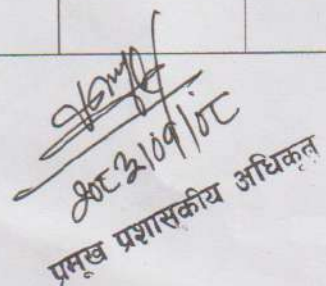 २०८३/०१/०८
प्रमुख प्रशासकीय अधिकृत